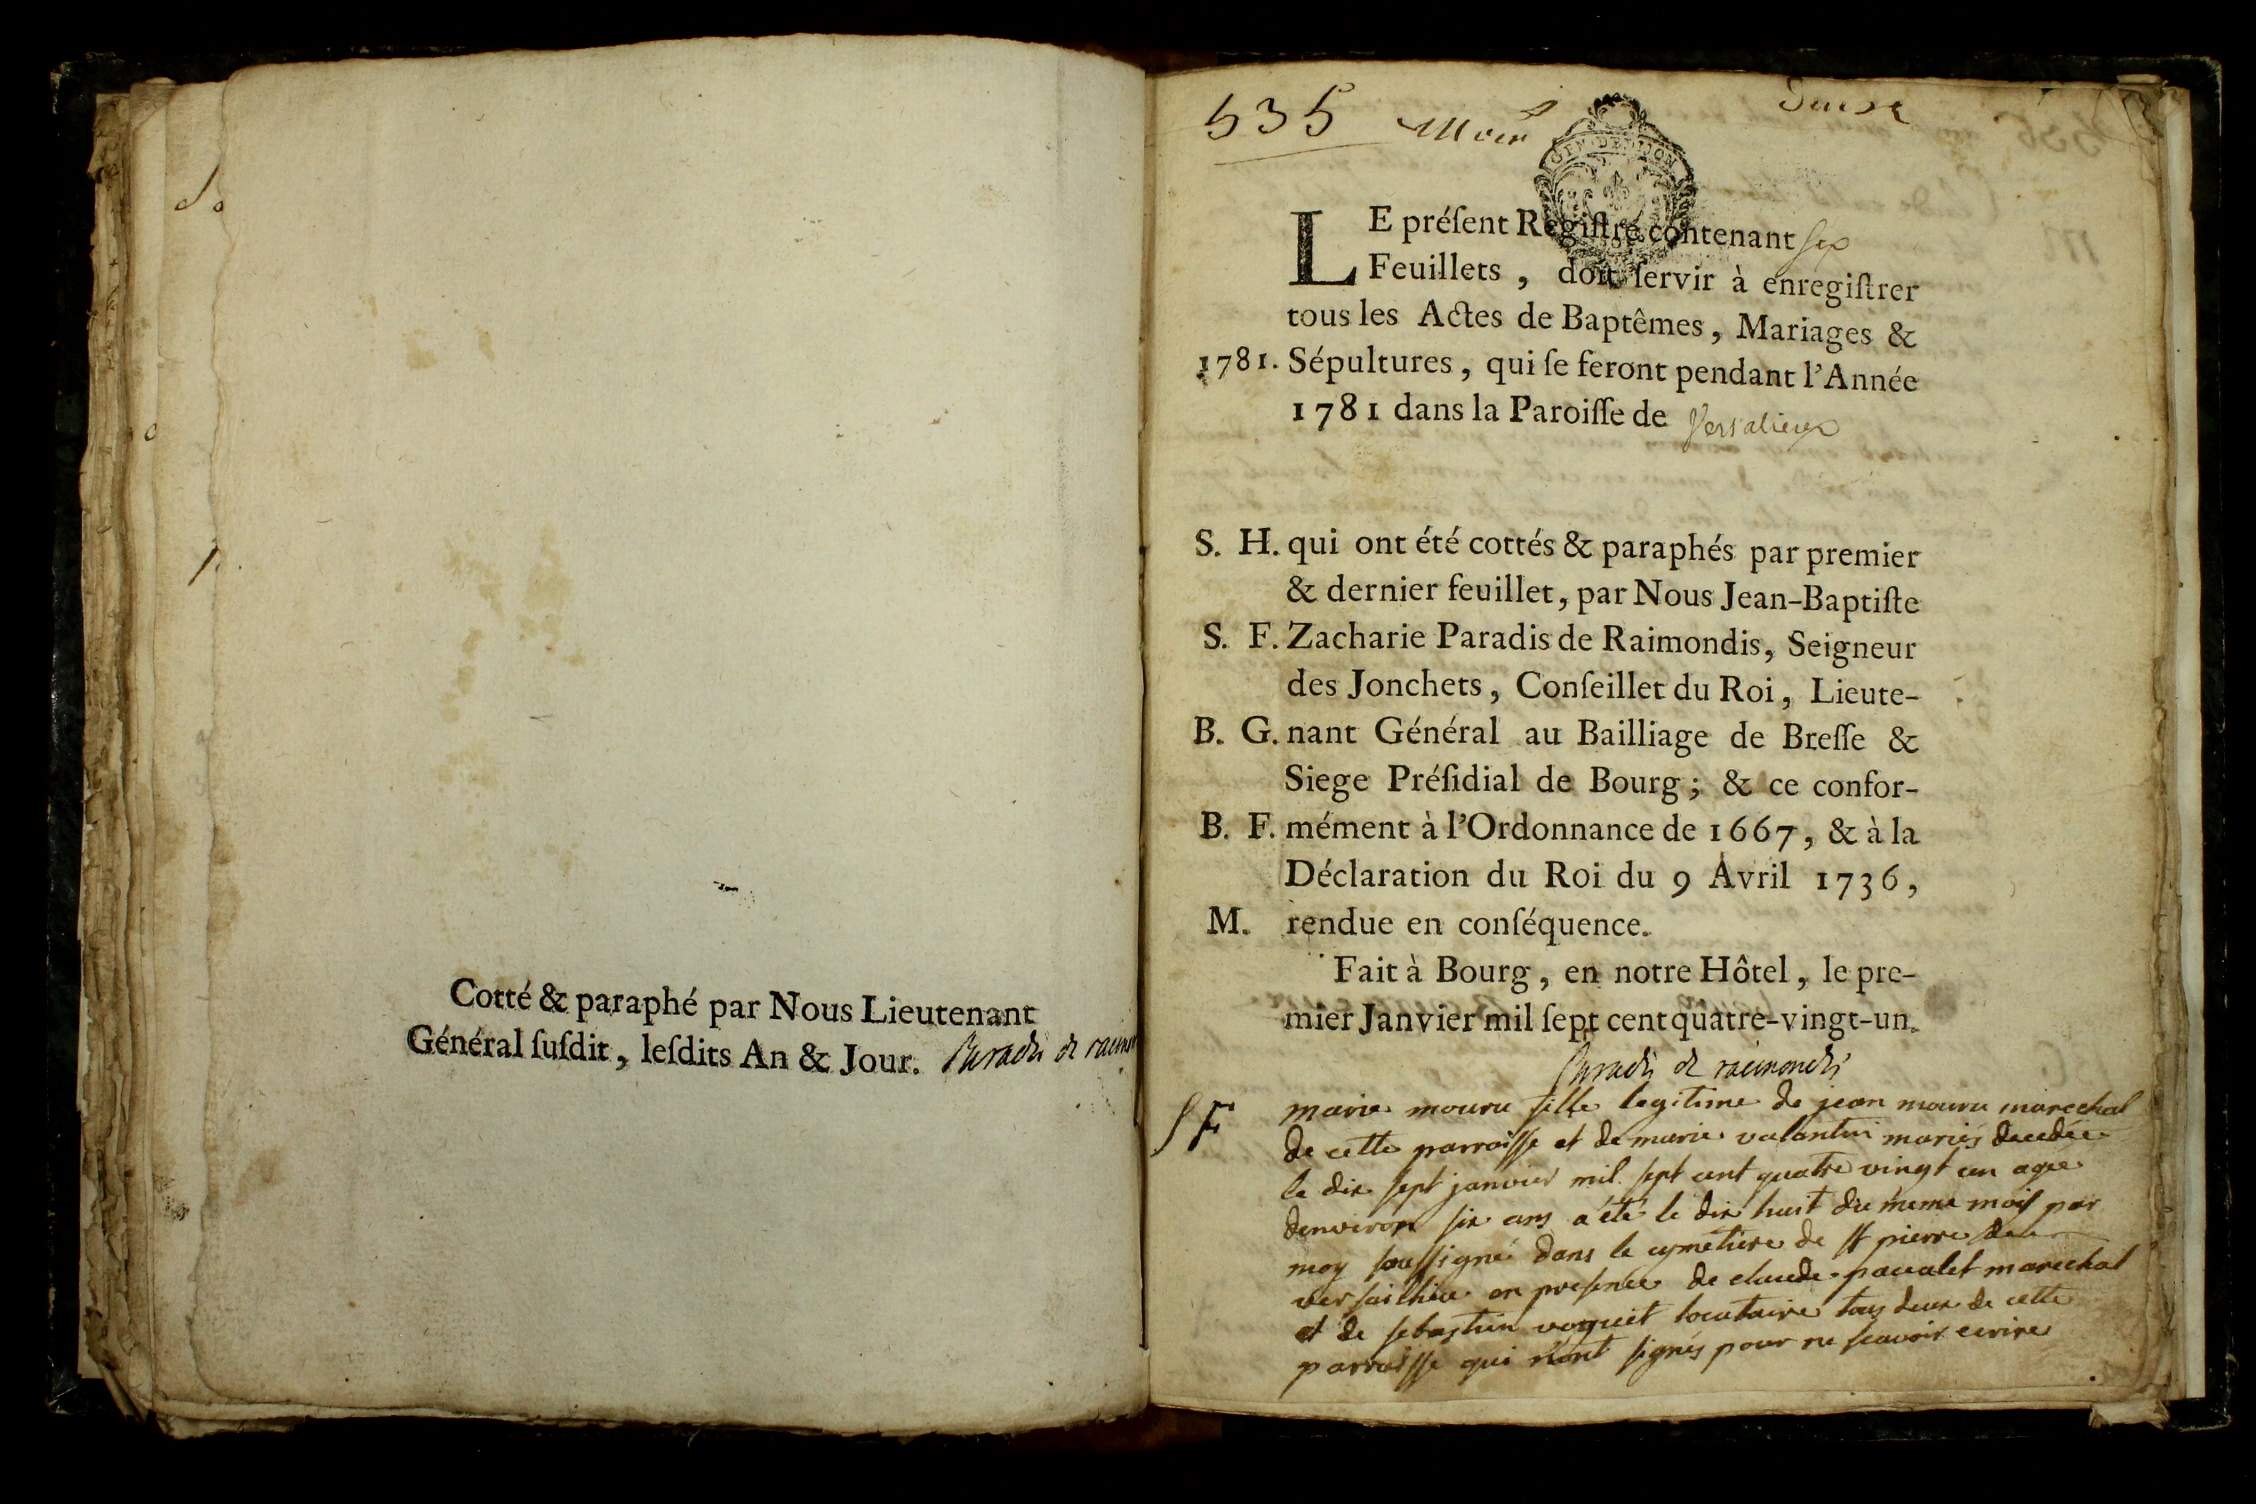 Cotté & paraphé par Nous Lieutenant
Général ſuſdit, leſdits An & Jour. Paradis de raimon
535
GEN. DE DIJON
LE préſent Regiſtre contenant six
Feuillets, doit ſervir à enregiſtrer
tous les Actes de Baptêmes, Mariages &
1781. Sépultures, qui ſe feront pendant l'Année
1781 dans la Paroiſſe de Versalieux
S. H. qui ont été cottés & paraphés par premier
& dernier feuillet, par Nous Jean-Baptiſte
S. F. Zacharie Paradis de Raimondis, Seigneur
des Jonchets, Conſeillet du Roi, Lieute-
B. G. nant Général au Bailliage de Breſſe &
Siege Préſidial de Bourg; & ce confor-
B. F. mément à l'Ordonnance de 1667, & à la
Déclaration du Roi du 9 Avril 1736,
M. rendue en conſéquence.
Fait à Bourg, en notre Hôtel, le pre-
mier Janvier mil ſept cent quatre-vingt-un.
Paradis de raimondis
SF marie mouru fille legitime de jean mouru marechal
de cette parroisse et de marie valantin mariés decedée
le dix sept janvier mil sept cent quatre vingt un agée
denviron six ans a été le dix huit du meme mois par
moy soussigné dans le cymetiere de st pierre de
versailheu en presence de claude pacalet marechal
et de sebastien voquet locataire tous deux de cette
parroisse qui n'ont signés pour ne scavoir ecrire